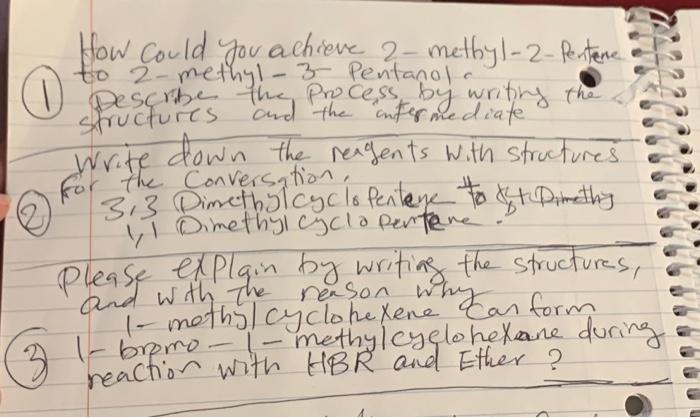 How could you achieve 2-methyl-2-Pentene
① to 2-methyl-3-Pentanol.
Describe the process by writing the
structures and the intermediate
Write down the reagents with structures
For the Conversation,
② 3,3 Dimethylcyclo Pentene to Dimethy
1,1 Dimethyl cyclo pentene.
Please explain by writing the structures,
and with the reason why
1-methylcyclohexene can form
③ 1-bromo-1-methylcyclohexane during
reaction with HBR and Ether?